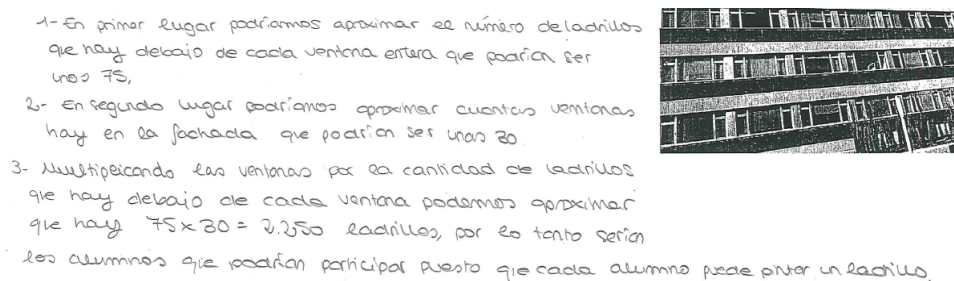 1- En primer lugar podríamos aproximar el número de ladrillos
que hay debajo de cada ventana entera que podrían ser
unos 75,
2- En segundo lugar podríamos aproximar cuantas ventanas
hay en la fachada que podrían ser unas 30
3- Multiplicando las ventanas por la cantidad de ladrillos
que hay debajo de cada ventana podemos aproximar
que hay 75x30 = 2.250 ladrillos, por lo tanto serían
los alumnos que podrían participar puesto que cada alumno puede pintar un ladrillo.